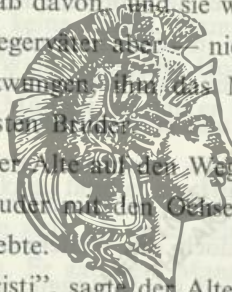 ab davon, und sie w
egerväter aber – nic
zwungen ihm das M
sten Bruder
er Alte auf den Weg
uder mit den Ochse
ebte.
isti”, sagte der Alte